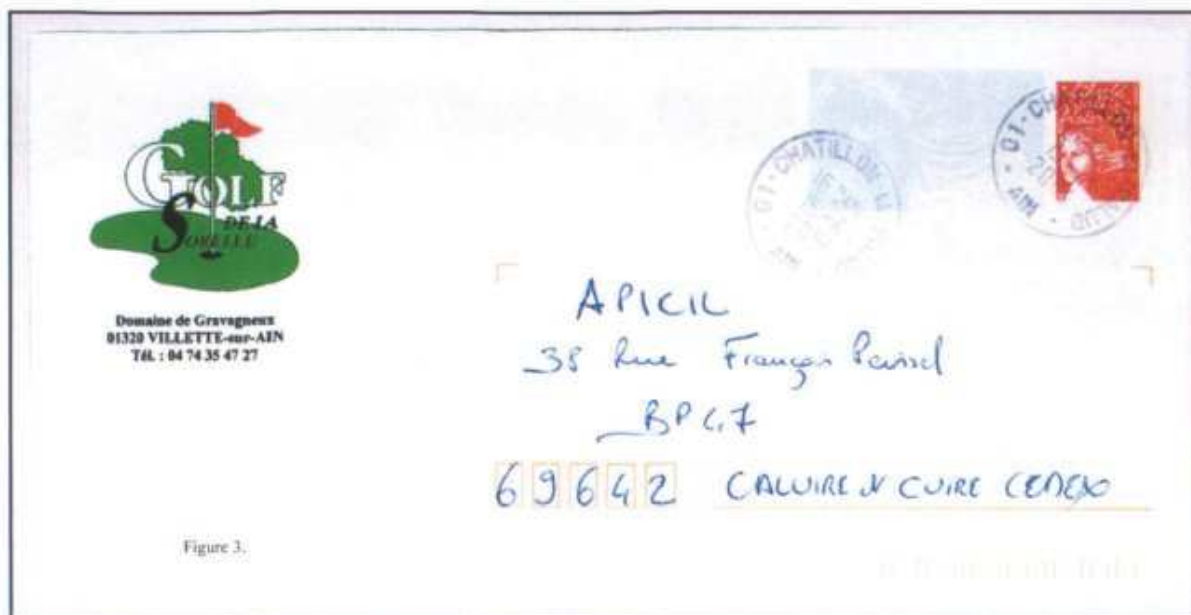 GOLF
DE LA
SORELLE
Domaine de Gravagneux
01320 VILLETTE-sur-AIN
Tél. : 04 74 35 47 27
01-CHATILLON
AIN
01-CHA
AIN
APICIL
38 Rue François Peissel
BP 47
69642 CALUIRE & CUIRE CEDEX
Figure 3.